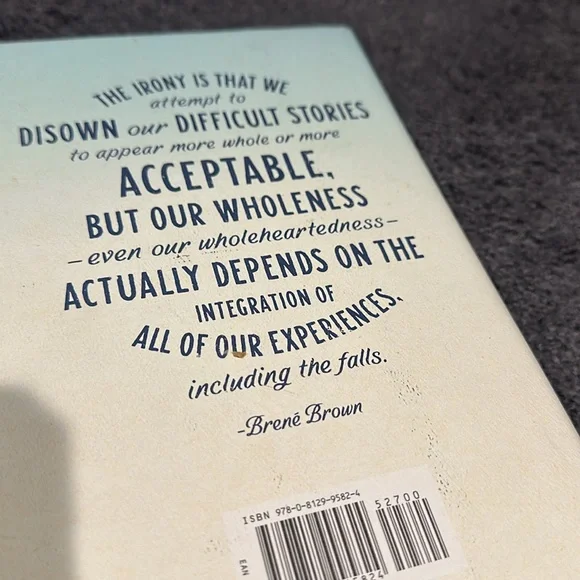 THE IRONY IS THAT WE
attempt to
DISOWN our DIFFICULT STORIES
to appear more whole or more
ACCEPTABLE,
BUT OUR WHOLENESS
—even our wholeheartedness—
ACTUALLY DEPENDS ON THE
INTEGRATION OF
ALL OF OUR EXPERIENCES,
including the falls.
-Brené Brown
ISBN 978-0-8129-9582-4
52700
EAN